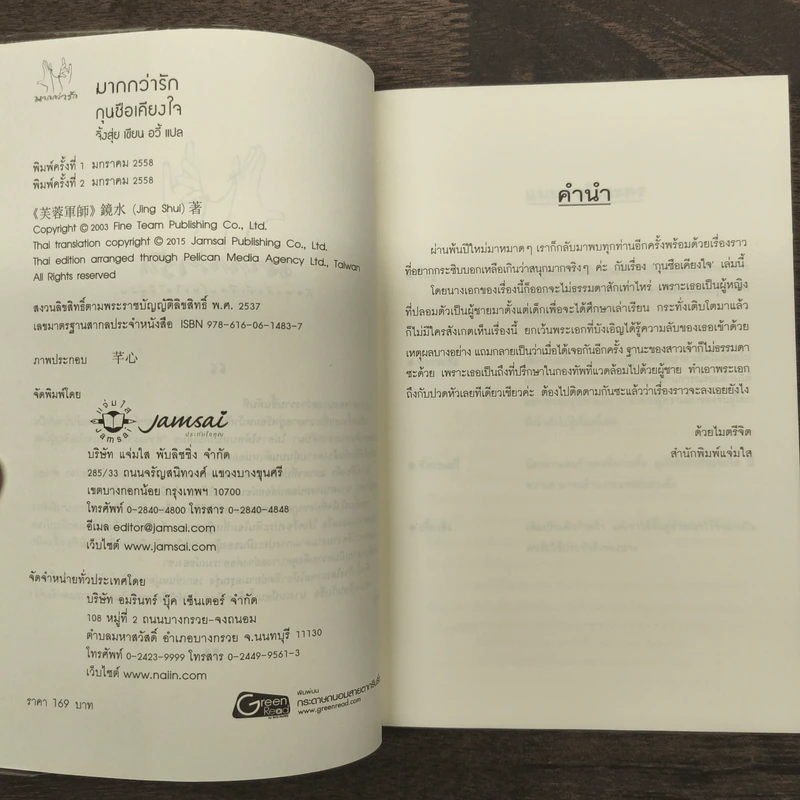 มากกว่ารัก
มากกว่ารัก
กุนซือเคียงใจ
จิ้งสุ่ย เขียน อวี้ แปล
พิมพ์ครั้งที่ 1 มกราคม 2558
พิมพ์ครั้งที่ 2 มกราคม 2558
《芙蓉軍師》鏡水 (Jing Shui) 著
Copyright © 2003 Fine Team Publishing Co., Ltd.
Thai translation copyright © 2015 Jamsai Publishing Co., Ltd.
Thai edition arranged through Pelican Media Agency Ltd., Taiwan
All Rights reserved
สงวนลิขสิทธิ์ตามพระราชบัญญัติลิขสิทธิ์ พ.ศ. 2537
เลขมาตรฐานสากลประจำหนังสือ ISBN 978-616-06-1483-7
ภาพประกอบ 芊心
จัดพิมพ์โดย
แจ่มใส
Jamsai
Jamsai
ประทับใจคุณ
บริษัท แจ่มใส พับลิชชิ่ง จำกัด
285/33 ถนนจรัญสนิทวงศ์ แขวงบางขุนศรี
เขตบางกอกน้อย กรุงเทพฯ 10700
โทรศัพท์ 0-2840-4800 โทรสาร 0-2840-4848
อีเมล editor@jamsai.com
เว็บไซต์ www.jamsai.com
จัดจำหน่ายทั่วประเทศโดย
บริษัท อมรินทร์ บุ๊ค เซ็นเตอร์ จำกัด
108 หมู่ที่ 2 ถนนบางกรวย-จงถนอม
ตำบลมหาสวัสดิ์ อำเภอบางกรวย จ.นนทบุรี 11130
โทรศัพท์ 0-2423-9999 โทรสาร 0-2449-9561-3
เว็บไซต์ www.naiin.com
ราคา 169 บาท
Green
Read
พิมพ์บน
กระดาษถนอมสายตากรีนรี้ด
www.greenread.com
คำนำ
ผ่านพ้นปีใหม่มาหมาดๆ เราก็กลับมาพบทุกท่านอีกครั้งพร้อมด้วยเรื่องราว
ที่อยากกระซิบบอกเหลือเกินว่าสนุกมากจริงๆ ค่ะ กับเรื่อง 'กุนซือเคียงใจ' เล่มนี้
โดยนางเอกของเรื่องนี้ก็ออกจะไม่ธรรมดาสักเท่าไหร่ เพราะเธอเป็นผู้หญิง
ที่ปลอมตัวเป็นผู้ชายมาตั้งแต่เด็กเพื่อจะได้ศึกษาเล่าเรียน กระทั่งเติบโตมาแล้ว
ก็ไม่มีใครสังเกตเห็นเรื่องนี้ ยกเว้นพระเอกที่บังเอิญได้รู้ความลับของเธอเข้าด้วย
เหตุผลบางอย่าง แถมกลายเป็นว่าเมื่อได้เจอกันอีกครั้ง ฐานะของสาวเจ้าก็ไม่ธรรมดา
ซะด้วย เพราะเธอเป็นถึงที่ปรึกษาในกองทัพที่แวดล้อมไปด้วยผู้ชาย ทำเอาพระเอก
ถึงกับปวดหัวเลยทีเดียวเชียวค่ะ ต้องไปติดตามกันซะแล้วว่าเรื่องราวจะลงเอยยังไง
ด้วยไมตรีจิต
สำนักพิมพ์แจ่มใส